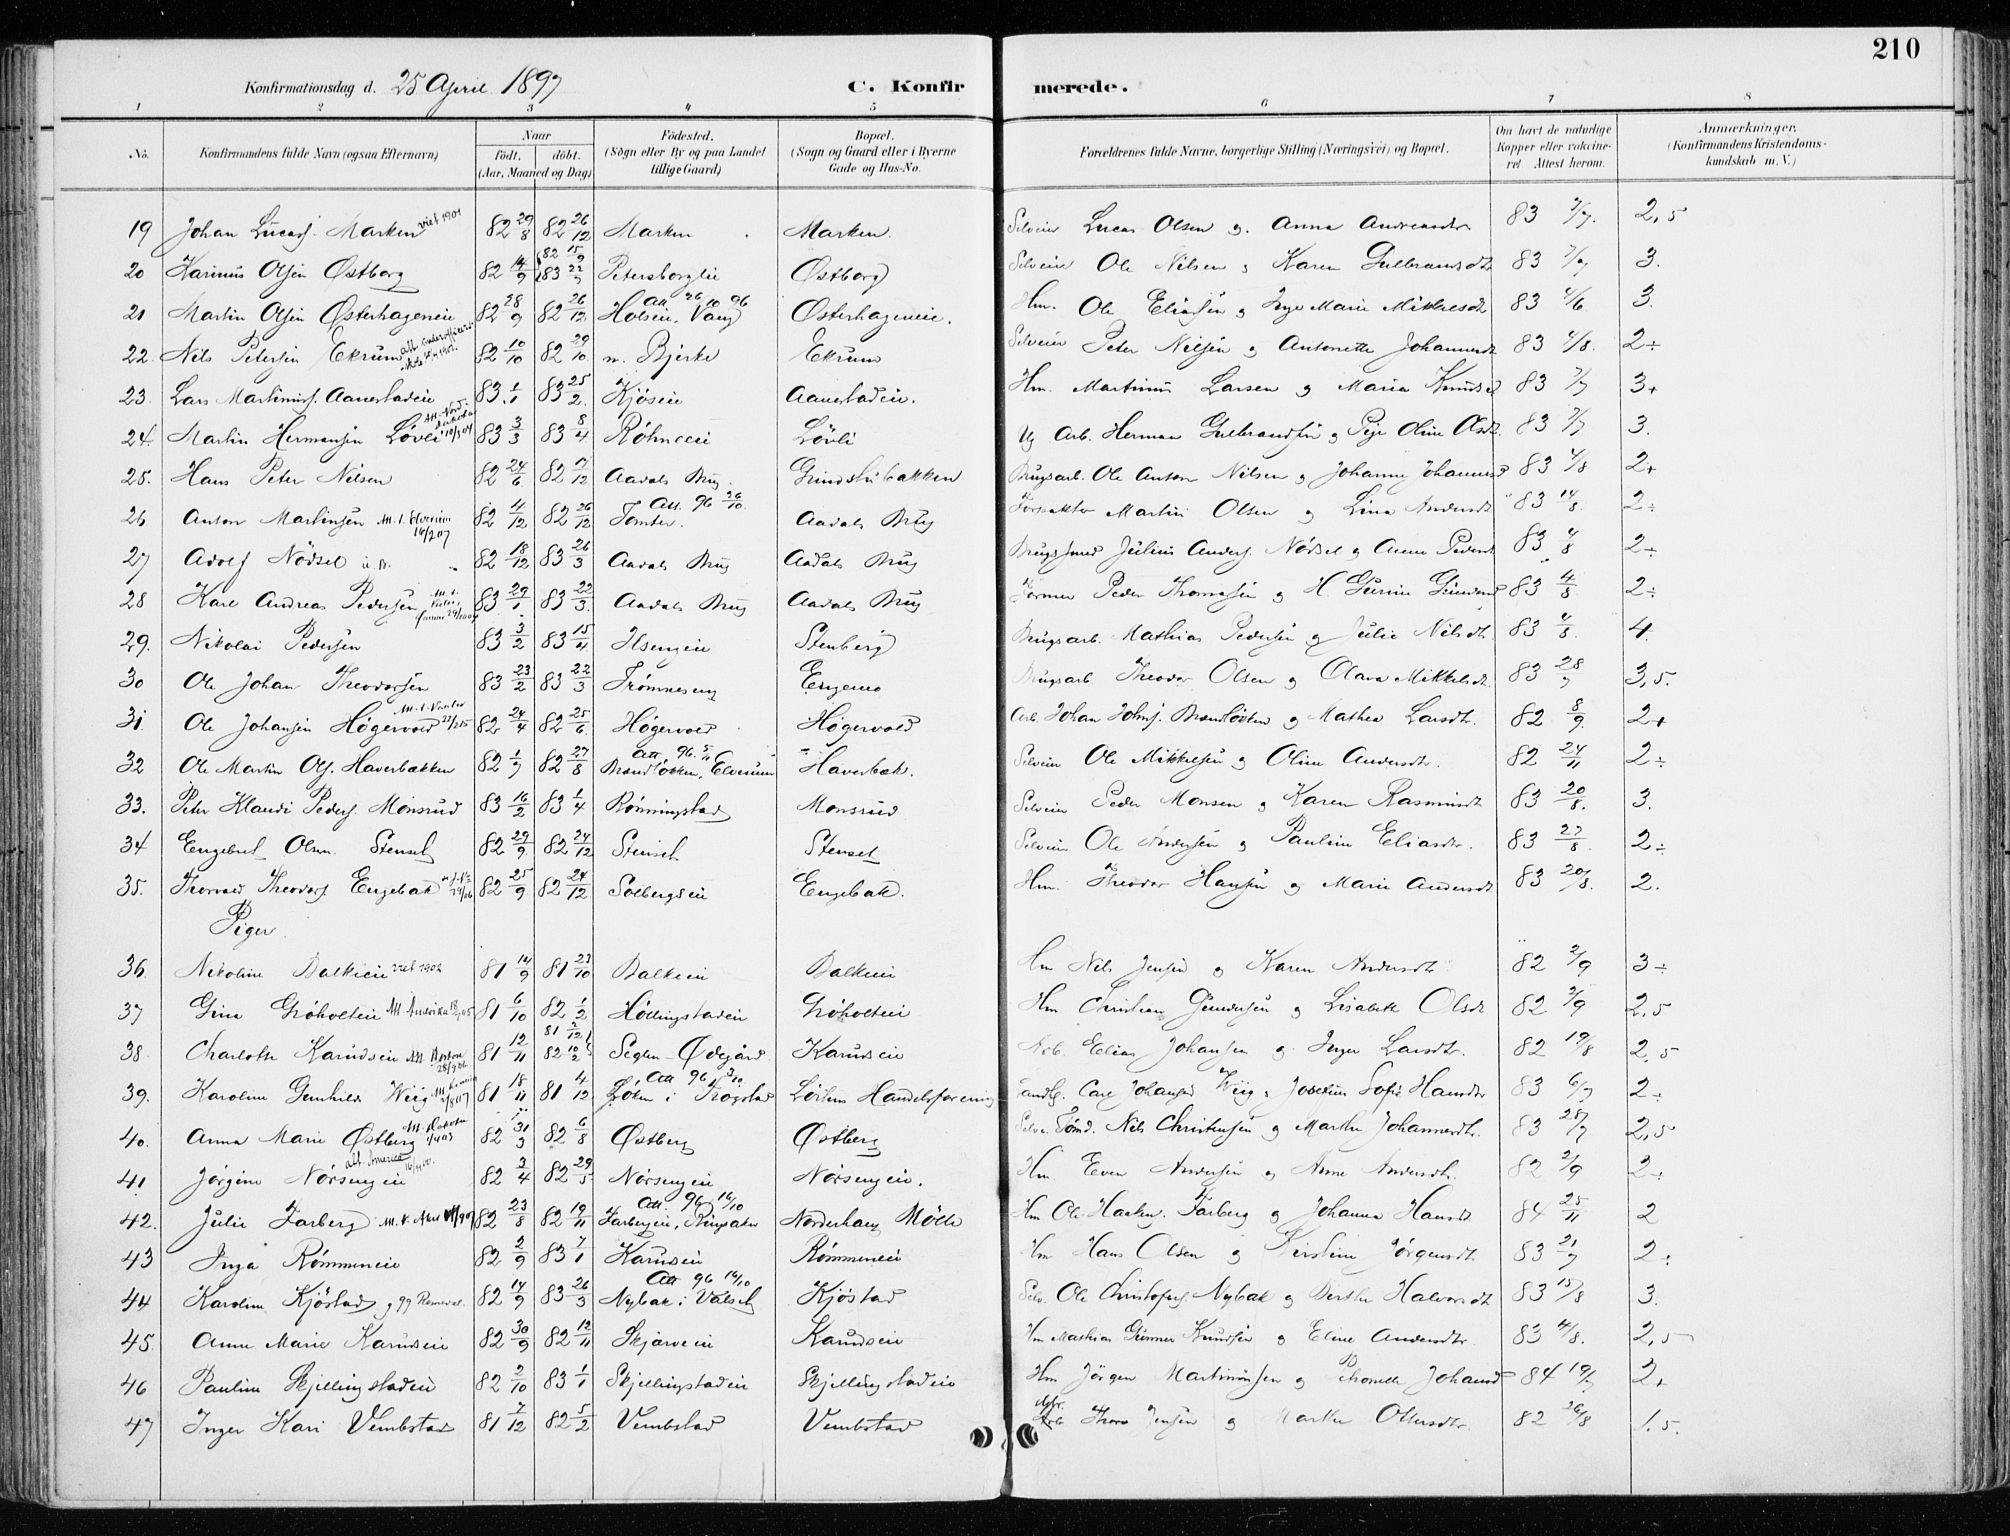 210
Konfirmationsdag d. 25 April 1897
C. Konfirmerede.
1 2 3 4 5 6 7 8
No. Konfirmandens fulde Navn (ogsaa Efternavn) Naar født. døbt. (Aar, Maaned og Dag) Fødested. (Sogn eller By og paa Landet tillige Gaard) Bopæl. (Sogn og Gaard eller i Byerne Gade og Hus-No. Forældrenes fulde Navne, borgerlige Stilling (Næringsvei) og Bopæl. Om havt de naturlige Kopper eller vakcineret. Attest herom. Anmærkninger. (Konfirmandens Kristendomskundskab m. V.)
19 Johan Lucass. Marken viet 1901 82 29/8 82 26/12 Marken Marken Selveier Lucas Olsen og Anna Andreasdtr 83 7/7. 2,5
20 Karinus Olsen Østborg 82 14/9 82 15/9 83 Petersborgeie Østborg Selveier Ole Nilsen og Karen Gulbrandsdtr 83 7/7 3.
21 Martin Olsen Østerhageneie 82 28/9 82 26/12 Att 26/10 96 Holseie, Vang Østerhageneie. Hm. Ole Eliasen og Inge Marie Mikkelsdtr 83 4/6 3.
22. Nils Petersen Ekrum 82 10/10 82 29/10 n. Bjerke Ekrum Selveier Peter Nilsen og Antonette Johannesdt 83 4/8. 2÷
23. Lars Martinius. Aanestadeie 83 1/1 83 25/2 Kjøseie Aanestadeie. Hm. Martinus Larsen og Maria Knudsd 83 7/7 3+
24. Martin Hermansen Løvli 83 3/3 83 8/4 Røhneeie Løvli Ug Arb. Herman Gulbrandsen og Oline Olsdt. 83 7/7 3.
25. Hans Peter Nilsen 82 24/6 82 Aadals Brug. Grindstubakken Brugsarb. Ole Anton Nilsen og Johanne Johannesd 83 4/8 2+
26 Anton Martinsen Att. t. Elverum 16/2 07 82 4/12 82 26/12 Att. 96 26/10 Tomter. Aadals Brug Martin Olsen og Lina Andersdt 83 14/8. 2÷
27 Adolf Nødsel 82 18/12 83 26/3 Aadals Brug Aadals Brug Brugssmed Julius Anders. Nødsel og Anne Pedersd 83 4/8 2÷
28 Karl Andreas Pedersen 83 29/1 83 22/3. Aadals Brug Aadals Brug Former Peder Thomasen og H. Gurine 83 4/8. 2÷
29. Nikolai Pedersen 83 3/2 83 15/4 Ilsengeie Stenberg Brugsarb. Mathias Pedersen og Julie Nilsdt. 83 4/8. 4.
30 Ole Johan Theodorsen 83 23/2 83 22/3 Trømneseng Engemo Brugsarb Theodor Olsen og Olava Mikkelsdt. 83 28/7 3,5.
31. Ole Johansen Høgervold 82 24/4 82 25/6 Høgervold Høgervold Arb. Johan Johns. Brændløkken og Mathea Larsdt. 82 8/9. 2+
32 Ole Martin Ols. Haverbakken 82 1/7 82 27/8 Att. 96. 5/11 Brændløkken, Elverum Haverbak. Selveier Ole Mikkelsen og Oline Andersdtr. 82 24/11 2÷
33. Peter Klaudi Peders. Monsrud 83 16/2 83 1/4 Rønningstad Monsrud Selveier Peder Monsen og Karen Rasmusdt. 83 20/8. 3.
34 Engebret Olsen Stenset 82 29/9 82 24/12 Stenset Stenset Selveier Ole Andersen og Pauline Eliasdtr. 83 27/8. 2÷
35. Thorvald Theodors. Engebak 82 25/9 82 24/12 Solbergseie Engebak. Hm. Theodor Hansen og Marie Andersdt 83 20/8. 2.
Piger
36. Nikoline Balkeie viet 1902 81 14/9 81 23/10 Balkeie Balkeie Hm Nils Jensen og Karen Andersdtr. 82 2/9 3÷
37 Gina Grøholteie Att. Amerika 81 6/10 82 1/2 Høllingstadeie Grøholteie Hm Christian Gundersen og Lisabeth Olsdt. 82 2/9. 2,5
38. Charlotte Karudseie 81 12/11 81 2/12 82 10/2 Seglen-Ødegård Karudseie Arb. Elias Johansen og Inger Larsdtr. 82 19/8 2,5
39. Karoline Gunhilda Wiig 81 18/11 81 4/12 Att 96 3/10 Løken i Trøgstad Løitens Handelsforening Landh. Carl Johansen Wiig og Josefine Sofie Hansdtr 83 6/7 2÷
40. Anna Marie Østberg Att. Dakota 82 31/3 82 6/8 Østberg Østberg Selve. Tømd. Nils Christensen og Marthe Johannesdtr. 83 28/7 2,5
41 Jørgine Nørsengeie att. Amerika 82 3/4 82 29/5 Nørsengeie Nørsengeie. Hm Even Andersen og Anne Andersdtr. 82 2/9 2÷
42. Julie Farberg 82 23/8 82 19/11 Att. 96 14/10 Farbergeie, Ringsaker Norderhaug Mølle Hm Ole Haaken. Farberg og Johanna Hansdt 84 25/11 2
43 Inga Rømmeneie 82 2/9 83 7/1 Karudseie Rømmeneie Hm Hans Olsen og Kirstine Jørgensdt. 83 21/7 2÷
44 Karoline Kjøstad 82 14/9 83 26/3 Att 96 14/10 Nybak i Valset Kjøstad Selv. Ole Christofers. Nybak og Berthe Halvorsdt 83 15/8 3.
45. Anne Marie Karudseie 82 30/9 82 12/11 Skjærveie Karudseie Hm Mathias Gunner Knudsen og Eline Andersdtr 83 4/8. 2,5
46 Pauline Skjellingstadeie 82 2/10 83 1/1 Skjellingstadeie Skjellingstadeie Hm Jørgen Martinusen og Pernelle Johansd 84 19/7 2+
47 Inger Kari Vembstad 81 7/12 82 5/2 Vembstad Vembstad Arb Thore Jensen og Marthe Olsdtr. 82 26/8 1.5.